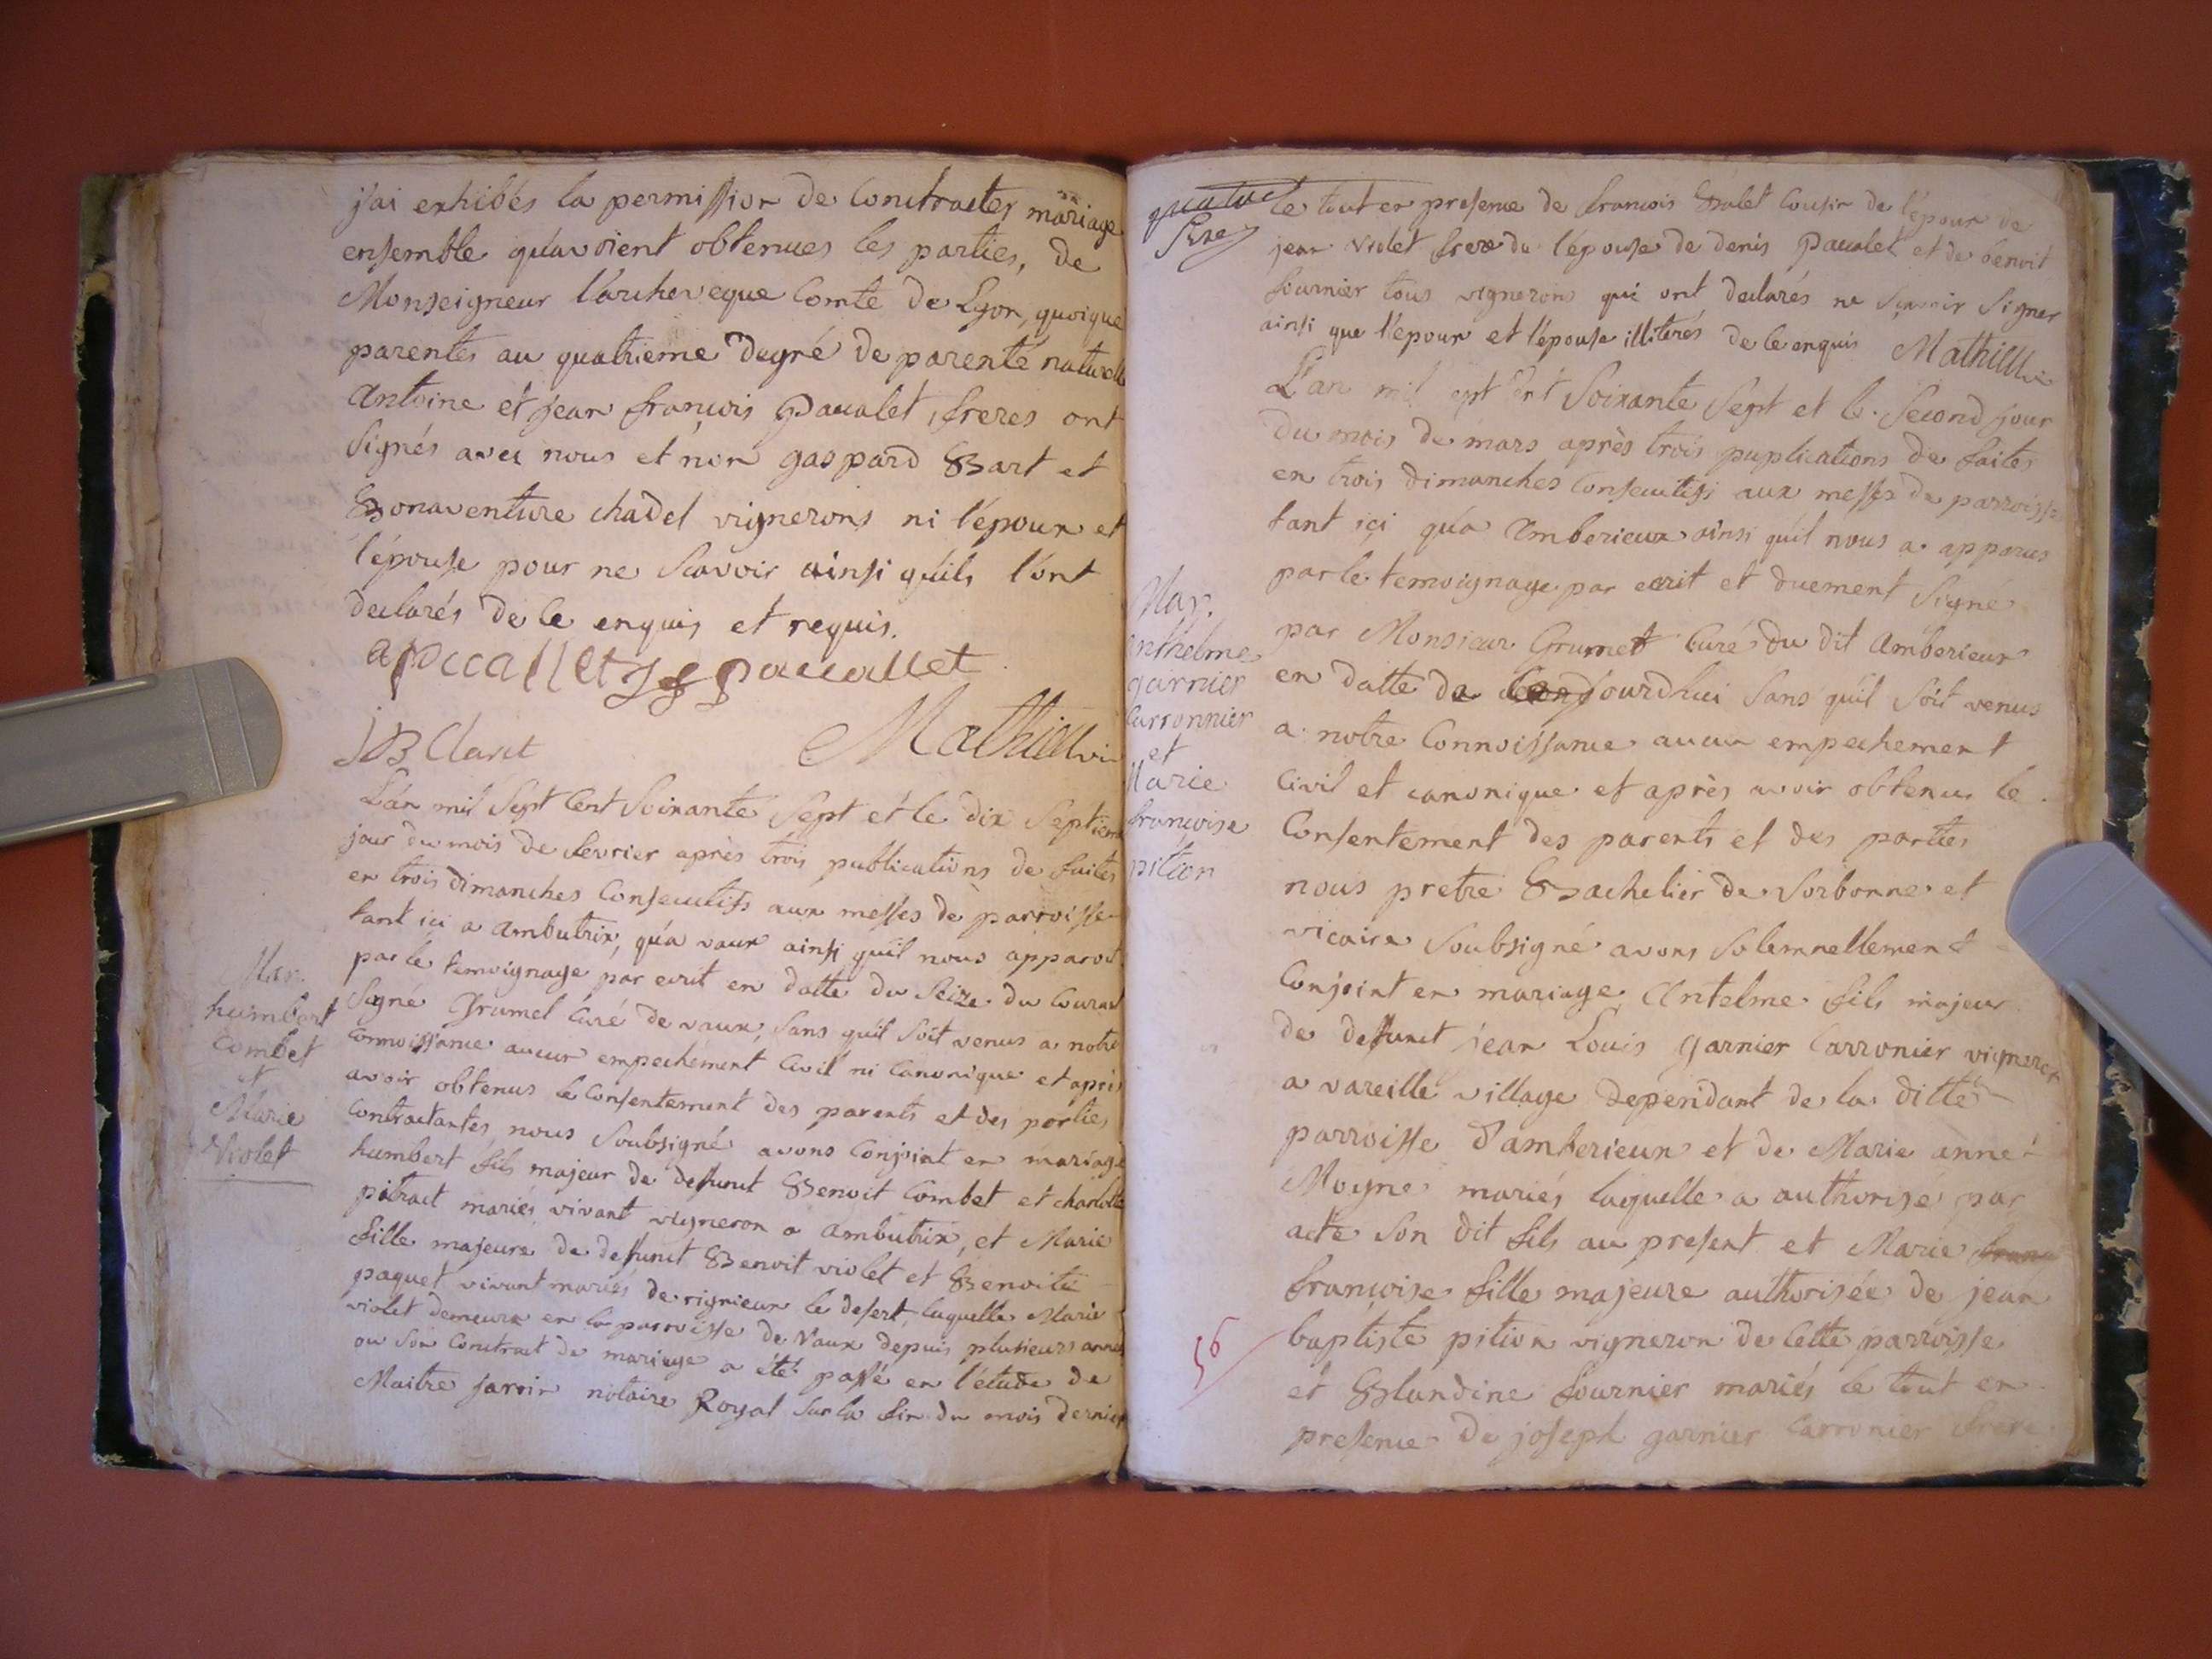 j'ai exhibés la permission de Contracter mariage
ensemble qu'avoient obtenues les parties, de
Monseigneur l'archeveque Comte de Lyon, quoique
parentes au quatrieme degré de parenté naturelle
Antoine et jean françois Pacalet, freres ont
Signés avec nous et non gaspard Bart et
Bonaventure chadel vignerons ni l'époux et
l'épouse pour ne Scavoir ainsi qu'ils l'ont
declarés de le enquis et requis.
apaccallet J f paccallet
J B Claret Mathieu vic
L'an mil Sept Cent Soixante Sept et le dix Septieme
jour du mois de fevrier après trois publications de faites
en trois dimanches Consecutifs aux messes de parroisse
tant ici a ambutrix, qu'a vaux ainsi qu'il nous apparoit
par le temoignage par ecrit en datte du Seize du Courant
Signé Grumel Curé de vaux, Sans qu'il Soit venus a notre
Connoissance aucun empechement Civil ni Canonique et après
avoir obtenus le Consentement des parents et des parties
Contractantes, nous Soubsigné avons Conjoint en mariage
humbert fils majeur de defunct Benoit Combet et charlotte
pitract mariés vivant vigneron a ambutrix, et Marie
fille majeure de defunct Benoit violet et Benoite
paquet vivant mariés de rignieux le desert, laquelle Marie
violet demeure en la parroisse de Vaux depuis plusieurs années
ou Son Contract de mariage a été passé en l'étude de
Maitre jarrin notaire Royal Sur la fin du mois dernier
Mar.
humbert
Combet
et
Marie
Violet
le tout en presence de francois Cousin de l'époux de
jean violet frere de l'épouse de denis Pacalet et de benoit
fournier tous vignerons qui ont declarés ne Scavoir Signer
ainsi que l'époux et l'épouse illiterés de le enquis Mathieu vic
L'an mil Sept Cent Soixante Sept et le Second jour
du mois de mars après trois puplications de faites
en trois dimanches Consecutifs aux messes de parroisse
tant içi qu'a Amberieux ainsi qu'il nous a apparus
par le temoignage par ecrit et duement Signé
par Monsieur Grumet Curé du dit Amberieux
en datte de jourdhui Sans qu'il Soit venus
a notre Connoissance aucun empechement
Civil et canonique et après avoir obtenus le
Consentement des parents et des parties
nous pretre Bachelier de Sorbonne et
vicaire Soubsigné avons Solemnellement
Conjoint en mariage Antelme fils majeur
de defunct jean Louis garnier Carronier vigneron
a vareille village dependant de la ditte
parroisse d'amberieux et de Marie anne
Moyne mariés laquelle a authorisé par
acte Son dit fils au present et Marie
françoise fille majeure authorisée de jean
baptiste pition vigneron de Cette parroisse
et Blandine fournier mariés le tout en
presence de joseph garnier Carronier frere
Mar.
anthelme
garnier
Carronnier
et
Marie
françoise
pition
56